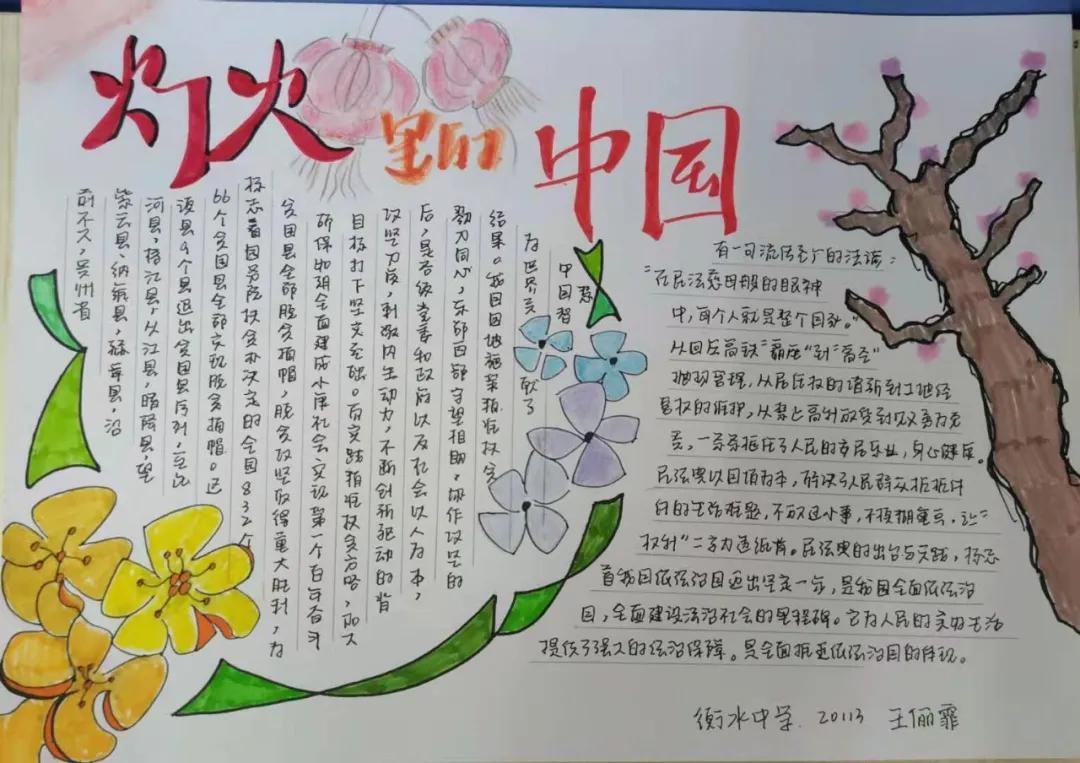 灯火
里的
中国
前不久,贵州省
紫云县、纳雍县、赫章县、沿
河县、榕江县、从江县、晴隆县、望
谟县9个县退出贫困县序列,至此
66个贫困县全部实现脱贫摘帽。这
标志着国务院扶贫办决定的全国832个
贫困县全部脱贫摘帽,脱贫攻坚取得重大胜利,为
确保如期全面建成小康社会、实现第一个百年奋斗
目标打下坚实基础。 实践精准扶贫方略,加大
攻坚力度,刺激内生动力,不断创新驱动的背
后,是各级党委和政府以及社会以人为本,
勠力同心,东部西部守望相助、协作攻坚的
结果。我国因地施策精准扶贫
为世界贡献了
中国智慧
有一句流传至广的法谚:
“在民法慈母般的眼神
中,每个人就是整个国家。”
从回应高铁“霸座”到“高空”
抛物管理,从居住权的 到土地经
营权的维护,从禁止高利放贷到 务
责,一条条 了人民的安居乐业,身心健康。
民法典以问题为本,解决了人民群众
的生活难题,不放过小事,不模糊重点,让“
权利”二字力透纸背。民法典的出台与实践,标志
着我国依法治国迈出坚实一步,是我国全面依法治
国,全面建设法治社会的里程碑。它为人民的美好生活
提供了强大的法治保障。是全面推进依法治国的体现。
衡水中学 20113 王俪霏